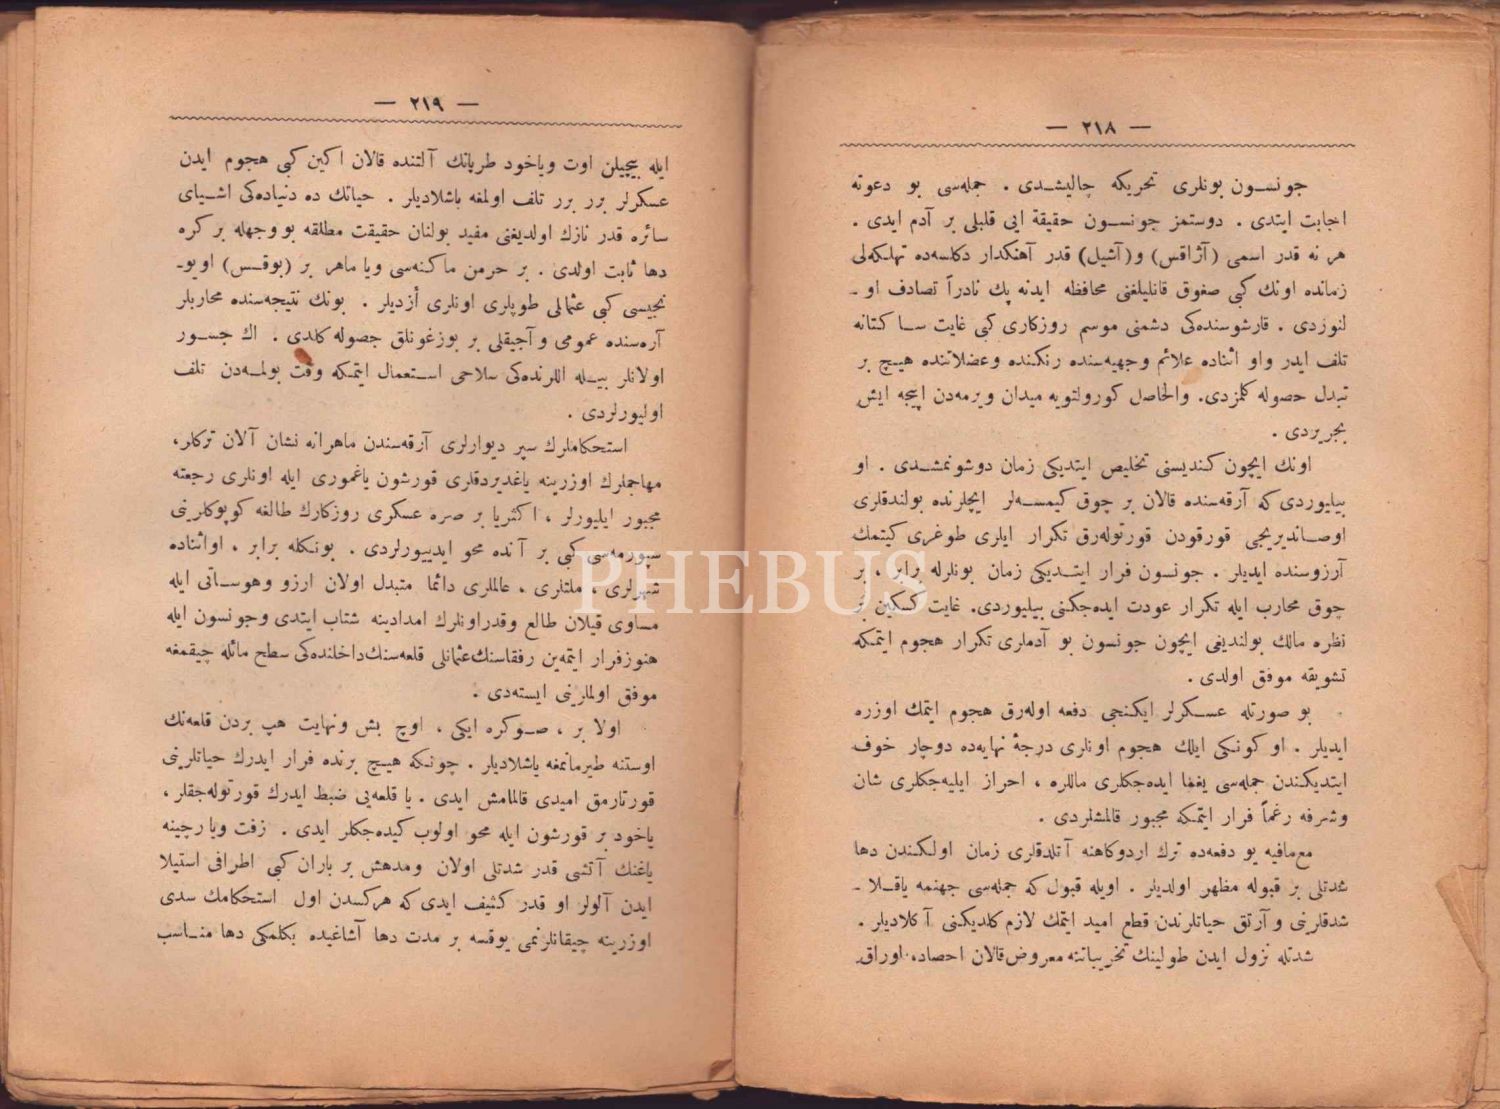 — ٢١٨ —
جونسون بونلری تحریکه چالیشدی . جمله‌سی بو دعوته
اجابت ایتدی . دوستمز جونسون حقیقة ایی قلبلی بر آدم ایدی .
هر نه قدر اسمی (آژاقس) و(آشیل) قدر آهنکدار دکلسه‌ده تهلکه‌لی
زمانده اونك کبی صغوق قانلیلغنی محافظه ایدنه پك نادراً تصادف او ـ
لنوردی . قارشوسنده‌کی دشمنی موسم روزکاری کبی غایت ساکتانه
تلف ایدر واو اثناده علائم وجهیه‌سنده رنکنده وعضلاتنده هیچ بر
تبدل حصوله کلمزدی. والحاصل کورولتویه میدان ویرمه‌دن اییجه ایش
بجریردی .
اونك ایچون کندیسنی تخلیص ایتدیکی زمان دوشونمشدی . او
بیلیوردی که آرقه‌سنده قالان بر چوق کیمسه‌لر ایچلرنده بولندقلری
اوصاندیریجی قورقودن قورتوله‌رق تکرار ایلری طوغری کیتمك
آرزوسنده ایدیلر . جونسون فرار ایتدیکی زمان بونلرله برابر ، بر
چوق محارب ایله تکرار عودت ایده‌جکنی بیلیوردی. غایت کسکین بر
نظره مالك بولندیغی ایچون جونسون بو آدملری تکرار هجوم ایتمکه
تشویقه موفق اولدی .
بو صورتله عسکرلر ایکنجی دفعه اوله‌رق هجوم ایتمك اوزره
ایدیلر . او کونکی ایلك هجوم اونلری درجهٔ نهایه‌ده دوچار خوف
ایتدیکندن جمله‌سی یغما ایده‌جکلری ماللره ، احراز ایلیه‌جکلری شان
وشرفه رغماً فرار ایتمکه مجبور قالمشلردی .
مع‌مافیه بو دفعه‌ده ترك اردوکاهنه آتلدقلری زمان اولکندن دها
شدتلی بر قبوله مظهر اولدیلر . اویله قبول که جمله‌سی جهنمه یاقلا ـ
شدقلرنی و آرتق حیاتلرندن قطع امید ایتمك لازم کلدیکنی آکلادیلر .
شدتله نزول ایدن طولینك تخریباتنه معروض قالان احصاده، اوراق
— ٢١٩ —
ایله بیچیلن اوت ویاخود طرپانك آلتنده قالان اکین کبی هجوم ایدن
عسکرلر برر برر تلف اولمغه باشلادیلر . حیاتك ده دنیاده‌کی اشیای
سائره قدر نازك اولدیغنی مفید بولنان حقیقت مطلقه بو وجهله بر کره
دها ثابت اولدی . بر خرمن ماکنه‌سی ویا ماهر بر (بوقس) اویو-
نجیسی کبی عثمانلی طوپلری اونلری أزدیلر . بونك نتیجه‌سنده محاربلر
آره‌سنده عمومی و آجیقلی بر بوزغونلق حصوله کلدی . اك جسور
اولانلر بیله اللرنده‌کی سلاحی استعمال ایتمکه وقت بولمه‌دن تلف
اولیورلردی .
استحکاملرك سپر دیوارلری آرقه‌سندن ماهرانه نشان آلان ترکلر،
مهاجملرك اوزرینه یاغدیردقلری قورشون یاغموری ایله اونلری رجعته
مجبور ایلیورلر ، اکثریا بر صره عسکری روزکارك طالغه کوپوکلرینی
سپورمه‌سی کبی بر آنده محو ایدییورلردی . بونکله برابر ، اواثناده
شهرلری ، ملتلری ، عالملری دائما متبدل اولان ارزو وهوساتی ایله
مساوی قیلان طالع وقدر اونلرك امدادینه شتاب ایتدی وجونسون ایله
هنوز فرار ایتمه‌ین رفقاسنك عثمانلی قلعه‌سنك داخلنده‌کی سطح مائله چیقمغه
موفق اولملرنی ایسته‌دی .
اولا بر ، صوکره ایکی ، اوچ بش ونهایت هپ بردن قلعه‌نك
اوستنه طیرمانمغه باشلادیلر . چونکه هیچ برنده فرار ایدرك حیاتلرینی
قورتارمق امیدی قالمامش ایدی . یا قلعه‌یی ضبط ایدرك قورتوله‌جقلر ،
یاخود بر قورشون ایله محو اولوب کیده‌جکلر ایدی . زفت ویا رچینه
یاغنك آتشی قدر شدتلی اولان ومدهش بر باران کبی اطرافی استیلا
ایدن آلولر او قدر کثیف ایدی که هرکسدن اول استحکامك سدی
اوزرینه چیقانلرنمی یوقسه بر مدت دها آشاغیده بکلمکی دها مناسب
PHEBUS